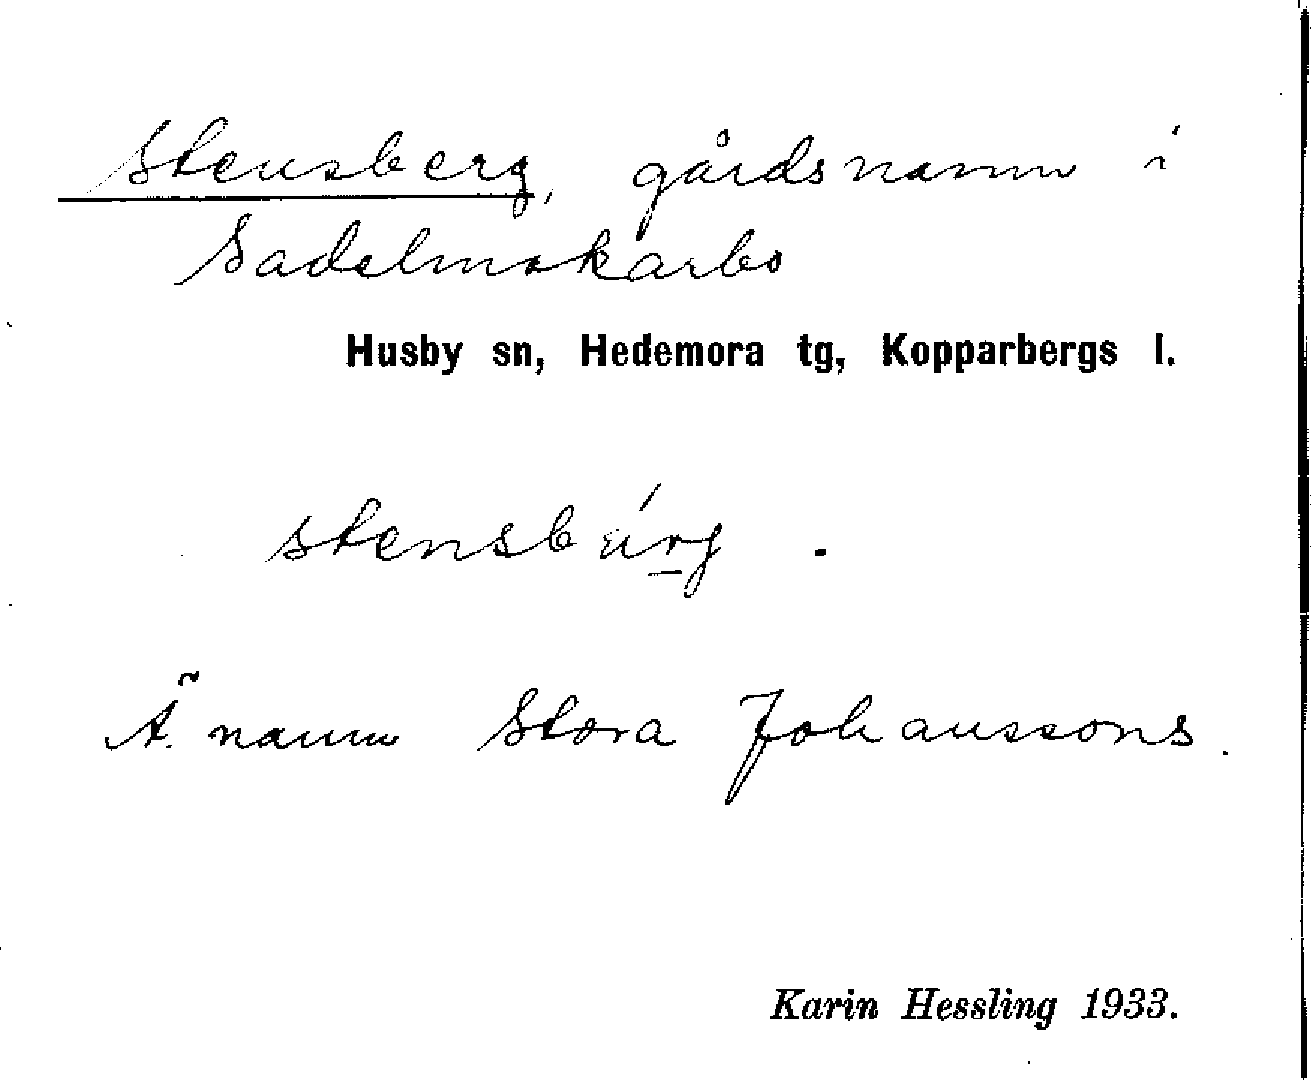 Stensberg, gårdsnamn i
Sadelmakarbo
Husby sn, Hedemora tg, Kopparbergs l.
stensbärg .
Ä. namn Stora Johanssons.
Karin Hessling 1933.